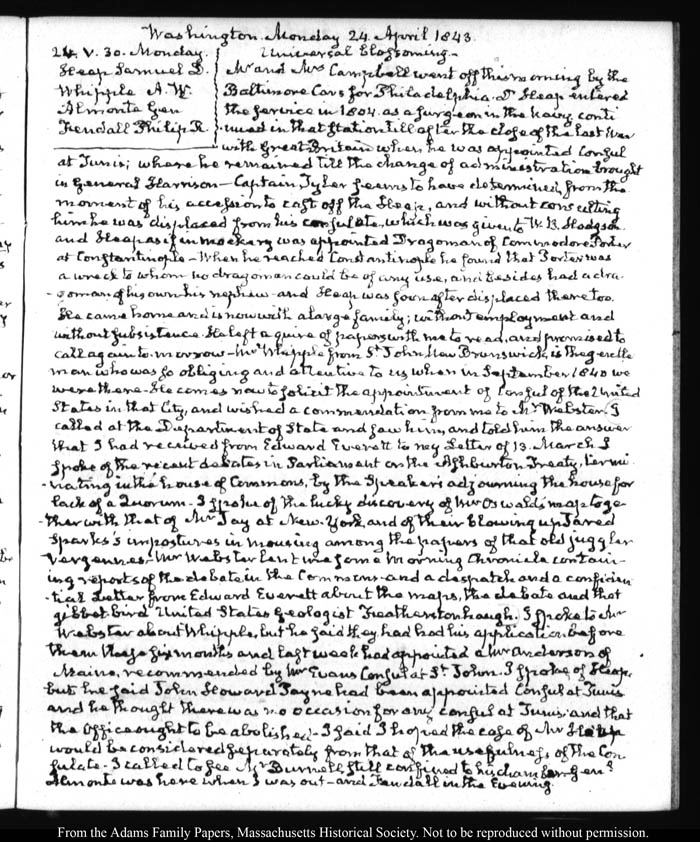 Washington Monday 24. April 1843.
24. V. 30. Monday.
Heap Samuel D.
Whipple A. W.
Almonte Gen
Fendall Philip R.
Universal blossoming—
Mr and Mrs Campbell went off this morning by the
Baltimore Cars for Philadelphia. Dr Heap entered
the service in 1804 as a surgeon in the Navy, conti
nued in that Station till after the close of the last War
with Great Britain when he was appointed Consul
at Tunis; where he remained till the change of administration brought
in General Harrison— Captain Tyler seems to have determined, from the
moment of his accession to cast off the Heap, and without consulting
him he was displaced from his consulate, which was given to W. B. Hodgson
and Heap as if in mockery was appointed Dragoman of Commodore Porter
at Constantinople— When he reached Constantinople he found that Porter was
a wreck to whom no dragoman could be of any use, and besides had a dra-
-goman of his own his nephew—and Heap was soon after displaced there too.
He came home and is now with a large family; without employment and
without subsistence. He left a quire of papers with me to read, and promised to
call again to-morrow— Mr Whipple from St John New Brunswick, is the gentle
man who was so obliging and attentive to us when in September 1840 we
were there— He comes now to solicit the appointment of Consul of the United
States in that City, and wished a commendation from me to Mr Webster. I
called at the Department of State and saw him, and told him the answer
that I had received from Edward Everett to my Letter of 13. March. I
spoke of the recent debates in Parliament on the Ashburton Treaty, termi
-nating in the house of Commons, by the Speaker's adjourning the house for
lack of a Quorum— I spoke of the lucky discovery of Mr Oswald's map toge-
-ther with that of Mr Jay at New-York, and of their blowing up Jared
Sparks's impostures in mousing among the papers of that old juggler
Vergennes— Mr Webster lent me some Morning Chronicle contain-
ing reports of the debate in the Commons—and a despatch and a confiden
-tial Letter from Edward Everett about the maps, the debate and that
gibbet-bird United States Geologist Featherstonhaugh. I spoke to Mr
Webster about Whipple, but he said they had had his application before
them these six months and last week had appointed a Mr Anderson of
Maine, recommended by Mr Evans Consul at St. John. I spoke of Heap,
but he said John Howard Payne had been appointed Consul at Tunis
and he thought there was no occasion for any consul at Tunis and that
the Office ought to be abolished— I said I hoped the case of Mr Heap
would be considered separately from that of the usefulness of the Con-
sulate— I called to see Mr Burnell, still confined to his chamber— Genl
Almonte was here when I was out—and Fendall in the Evening.
From the Adams Family Papers, Massachusetts Historical Society. Not to be reproduced without permission.